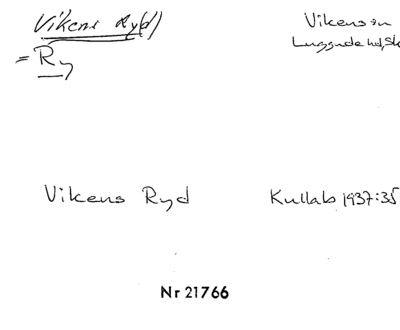 Vikens Ry(d)
Vikens sn
= Ry
Luggude hd, Sk
Vikens Ryd
Kullab 1937:35
Nr 21766